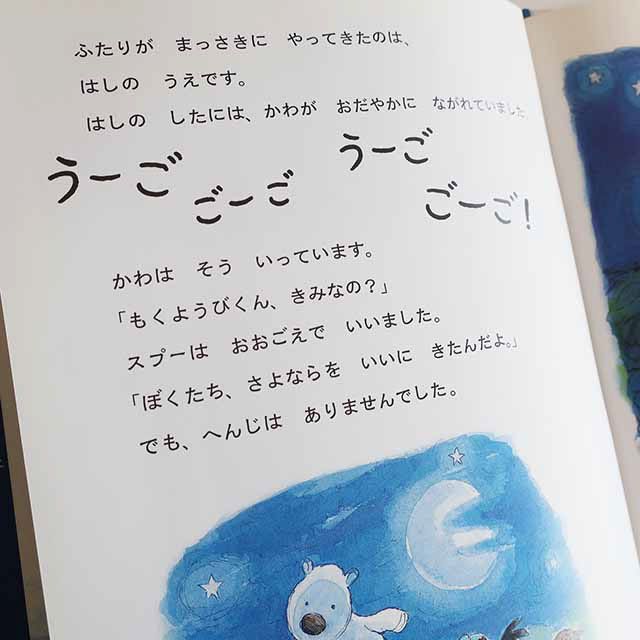 ふたりが　まっさきに　やってきたのは、
はしの　うえです。
はしの　したには、かわが　おだやかに　ながれていました。
うーご　うーご
ごーご　ごーご！
かわは　そう　いっています。
「もくようびくん、きみなの？」
スプーは　おおごえで　いいました。
「ぼくたち、さよならを　いいに　きたんだよ。」
でも、へんじは　ありませんでした。